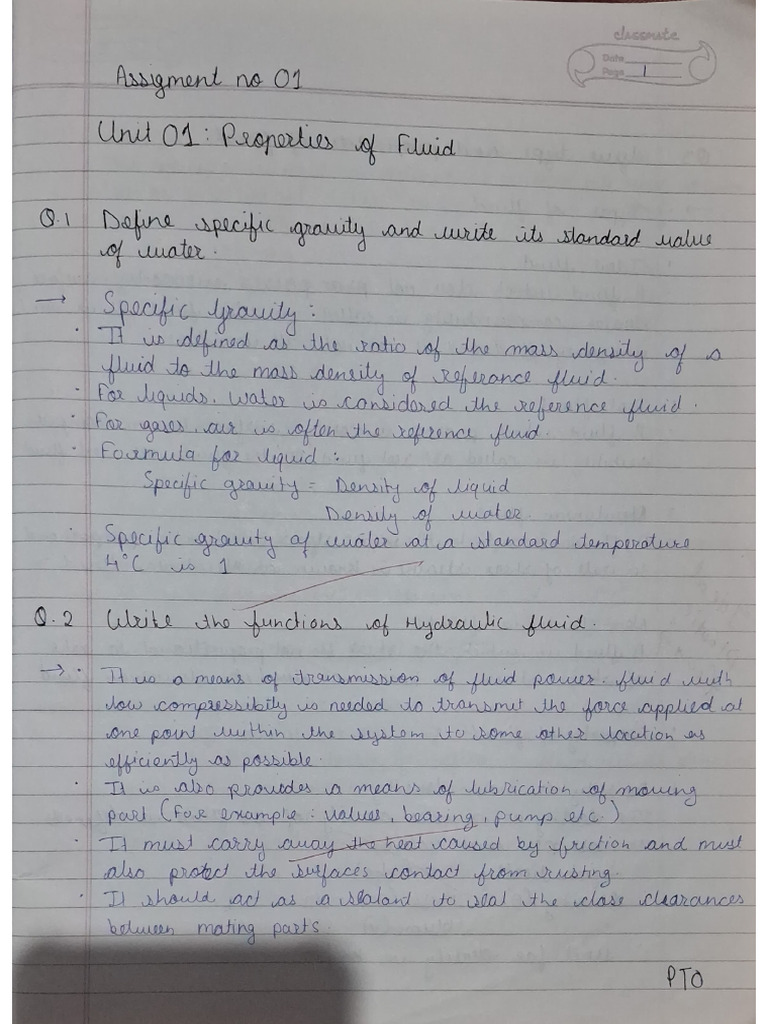 classmate
Date
Page 1
Assigment no 01
Unit 01 : Properties of Fluid
Q.1 Define specific gravity and write its standard value
of water.
→ Specific Gravity :
• It is defined as the ratio of the mass density of a
fluid to the mass density of referance fluid.
• For liquids, water is considered the reference fluid.
• For gases, air is often the reference fluid.
• Formula for liquid :
Specific gravity = Density of liquid
Density of water.
• Specific gravity of water at a standard temperature
4°C is 1
Q.2 Write the functions of Hydraulic fluid.
→ • It is a means of transmission of fluid power. fluid with
low compressibity is needed to transmit the force applied at
one point within the system to some other location as
efficiently as possible.
• It is also provides a means of lubrication of moving
part (For example : valves, bearing, pump etc.)
• It must carry away the heat caused by friction and must
also protect the surfaces contact from rusting.
• It should act as a sealant to seal the close clearances
between mating parts.
PTO